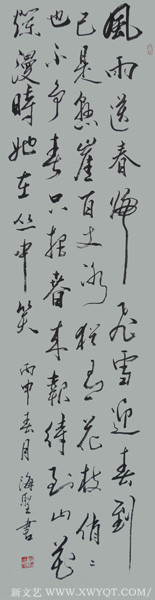 風雨送春歸飛雪迎春到
已是懸崖百丈冰猶有花枝俏々
也不争春只把春来報待到山花
爛漫時她在丛中笑
丙申春月海聖書
新文艺 WWW.XWYQT.COM